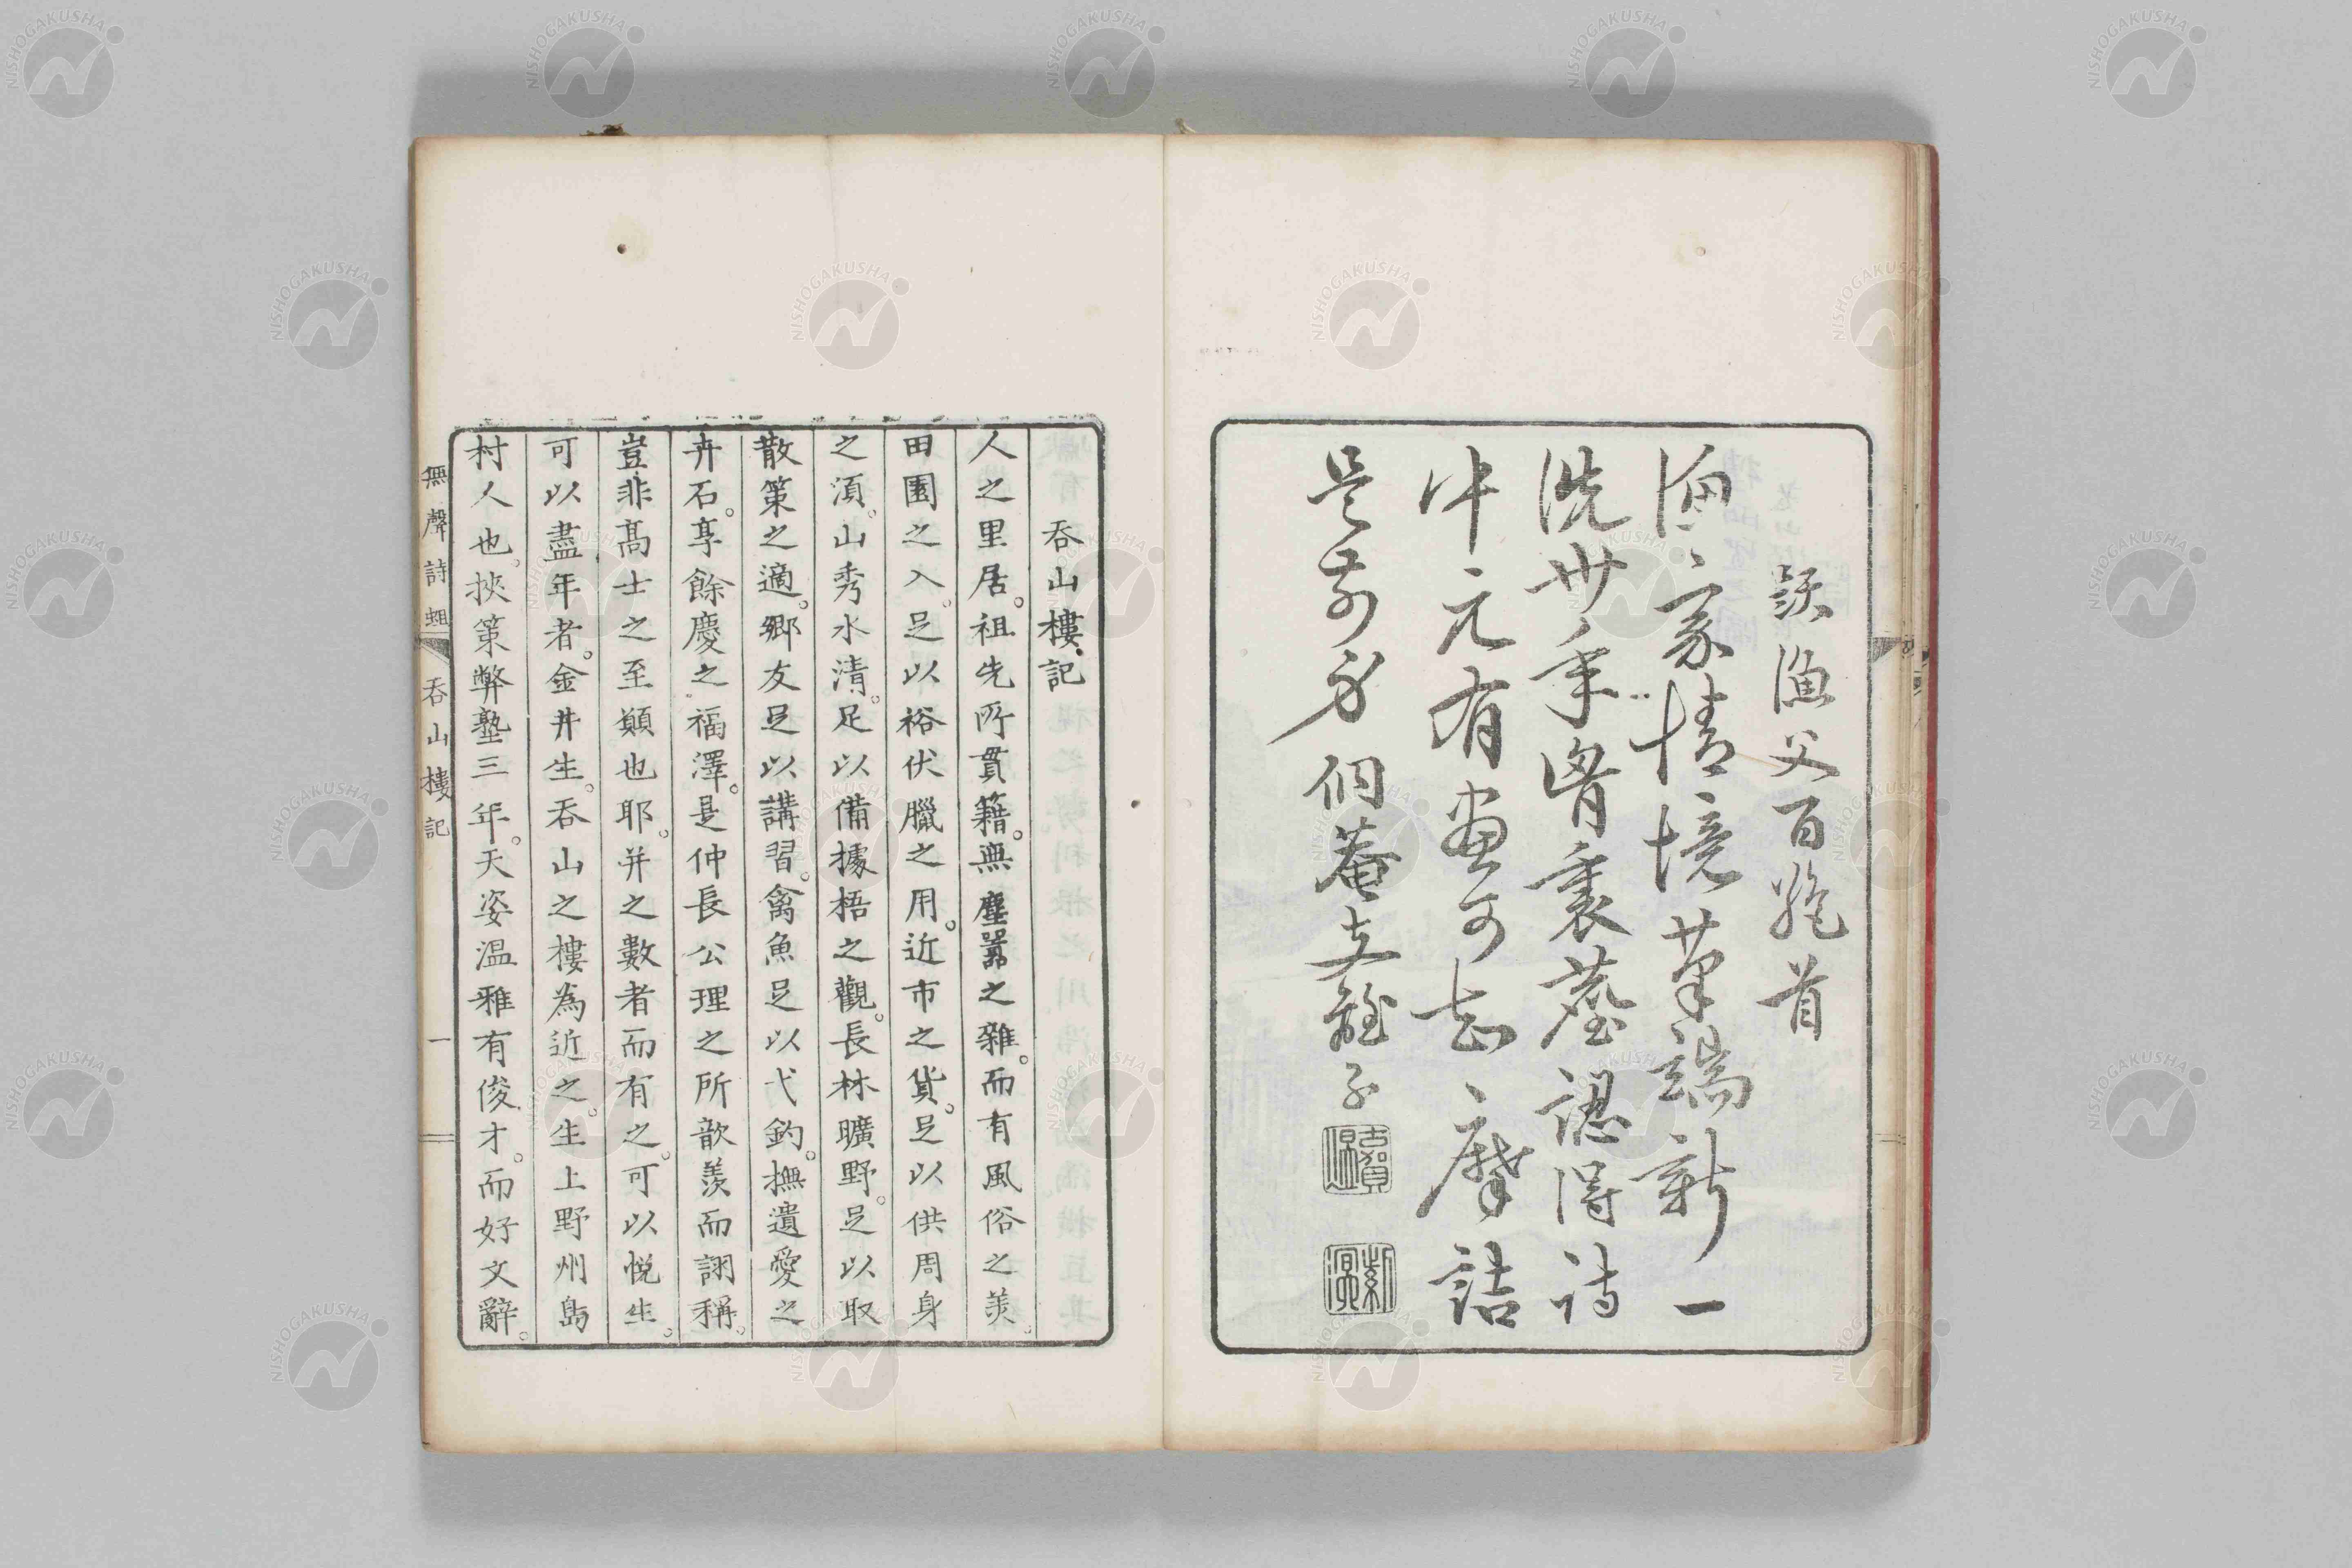 題漁父百絶首
漁家情境筆端新一
洗卅年胷裏塵認得詩
中元有畫可知摩詰
是前身 侗菴支離子
古賀煜
紫溟
吞山樓記
人之里居。祖先所貫籍。無塵囂之雜。而有風俗之美。
田園之入。足以裕伏臘之用。近市之貨。足以供周身
之湏。山秀水清。足以備據梧之觀。長林曠野。足以取
散策之適。鄉友足以講習。禽魚足以弋釣。撫遺愛之
卉石。享餘慶之福澤。是仲長公理之所歆羨而詡稱。
豈非高士之至願也耶。并之數者而有之。可以悅生。
可以盡年者。金井生。吞山之樓為近之。生上野州島
村人也。挾策弊塾三年。天姿溫雅有俊才。而好文辭。
無聲詩 吞山樓記 一
NISHOGAKUSHA